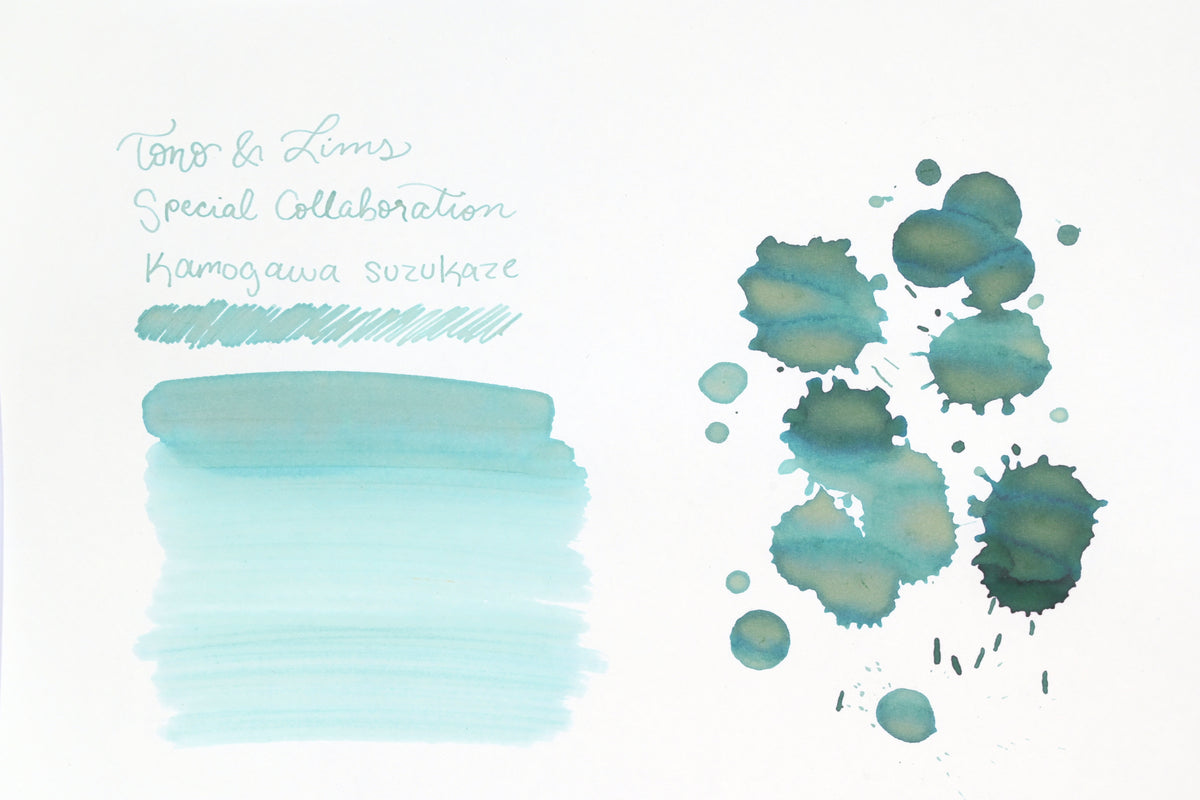 Tono & Lims
Special Collaboration
Kamogawa suzukaze